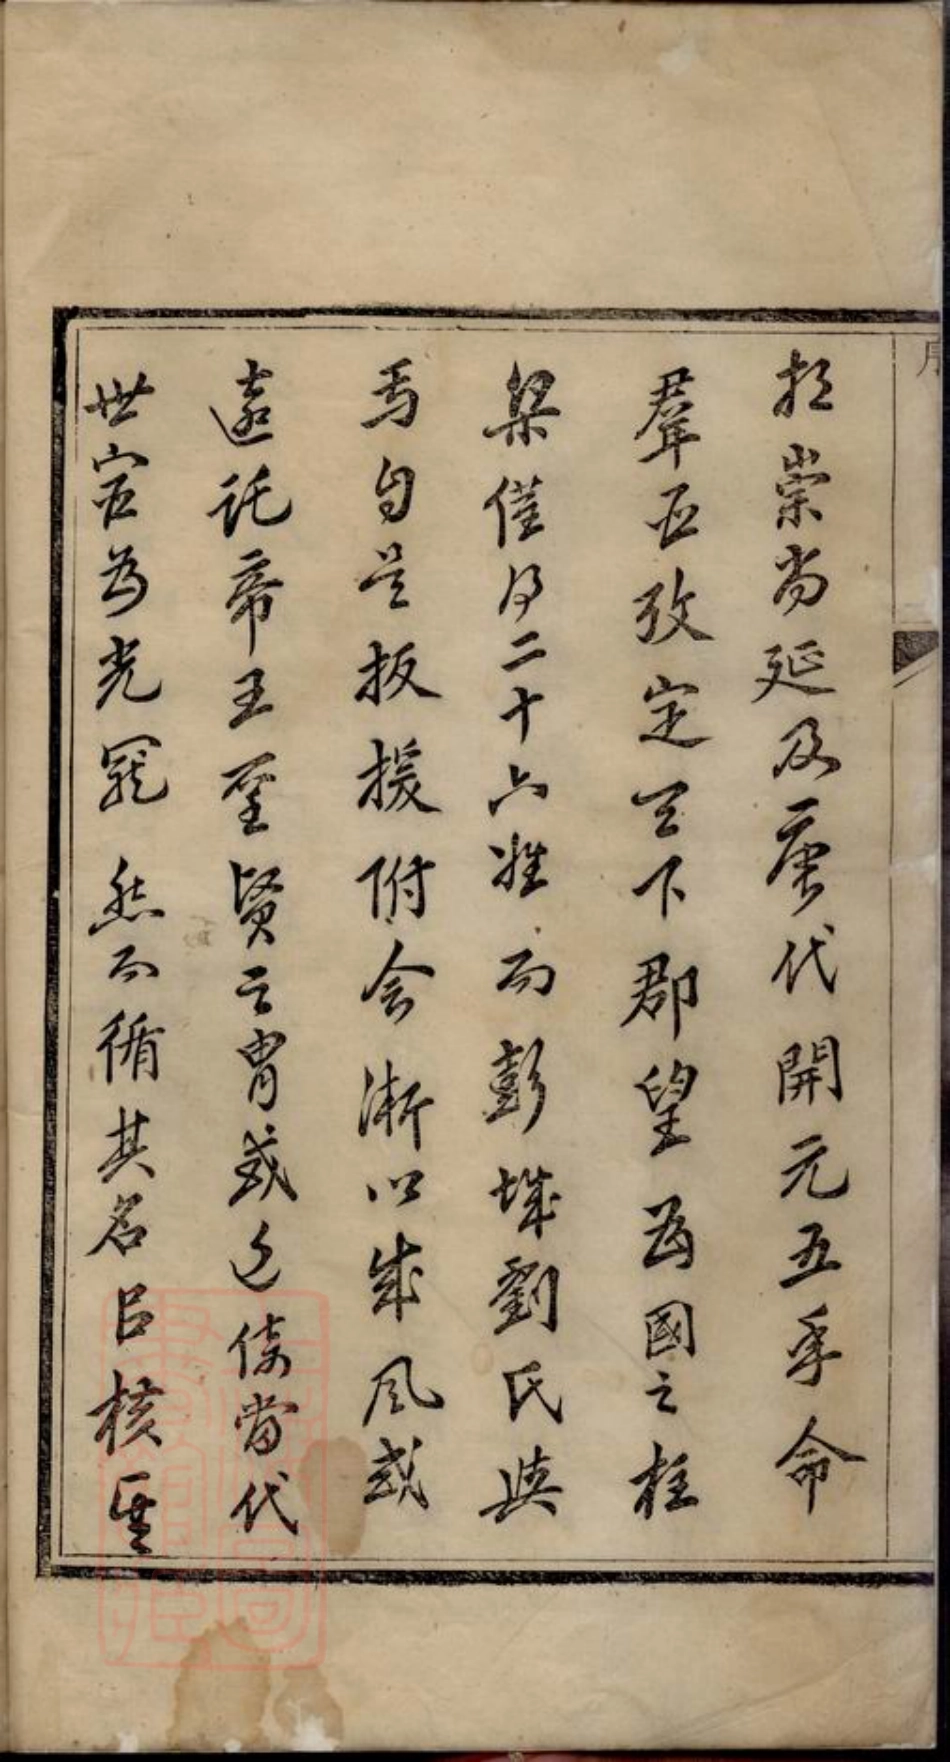 相崇尚延及唐代開元五年命
羣臣攷定天下郡望為國之柱
梁僅得二十六姓而彭城劉氏與
焉自是扳援附會漸以成風或
遠託帝王聖賢之胄或近倚當代
世宦為光寵然而循其名以核其
序